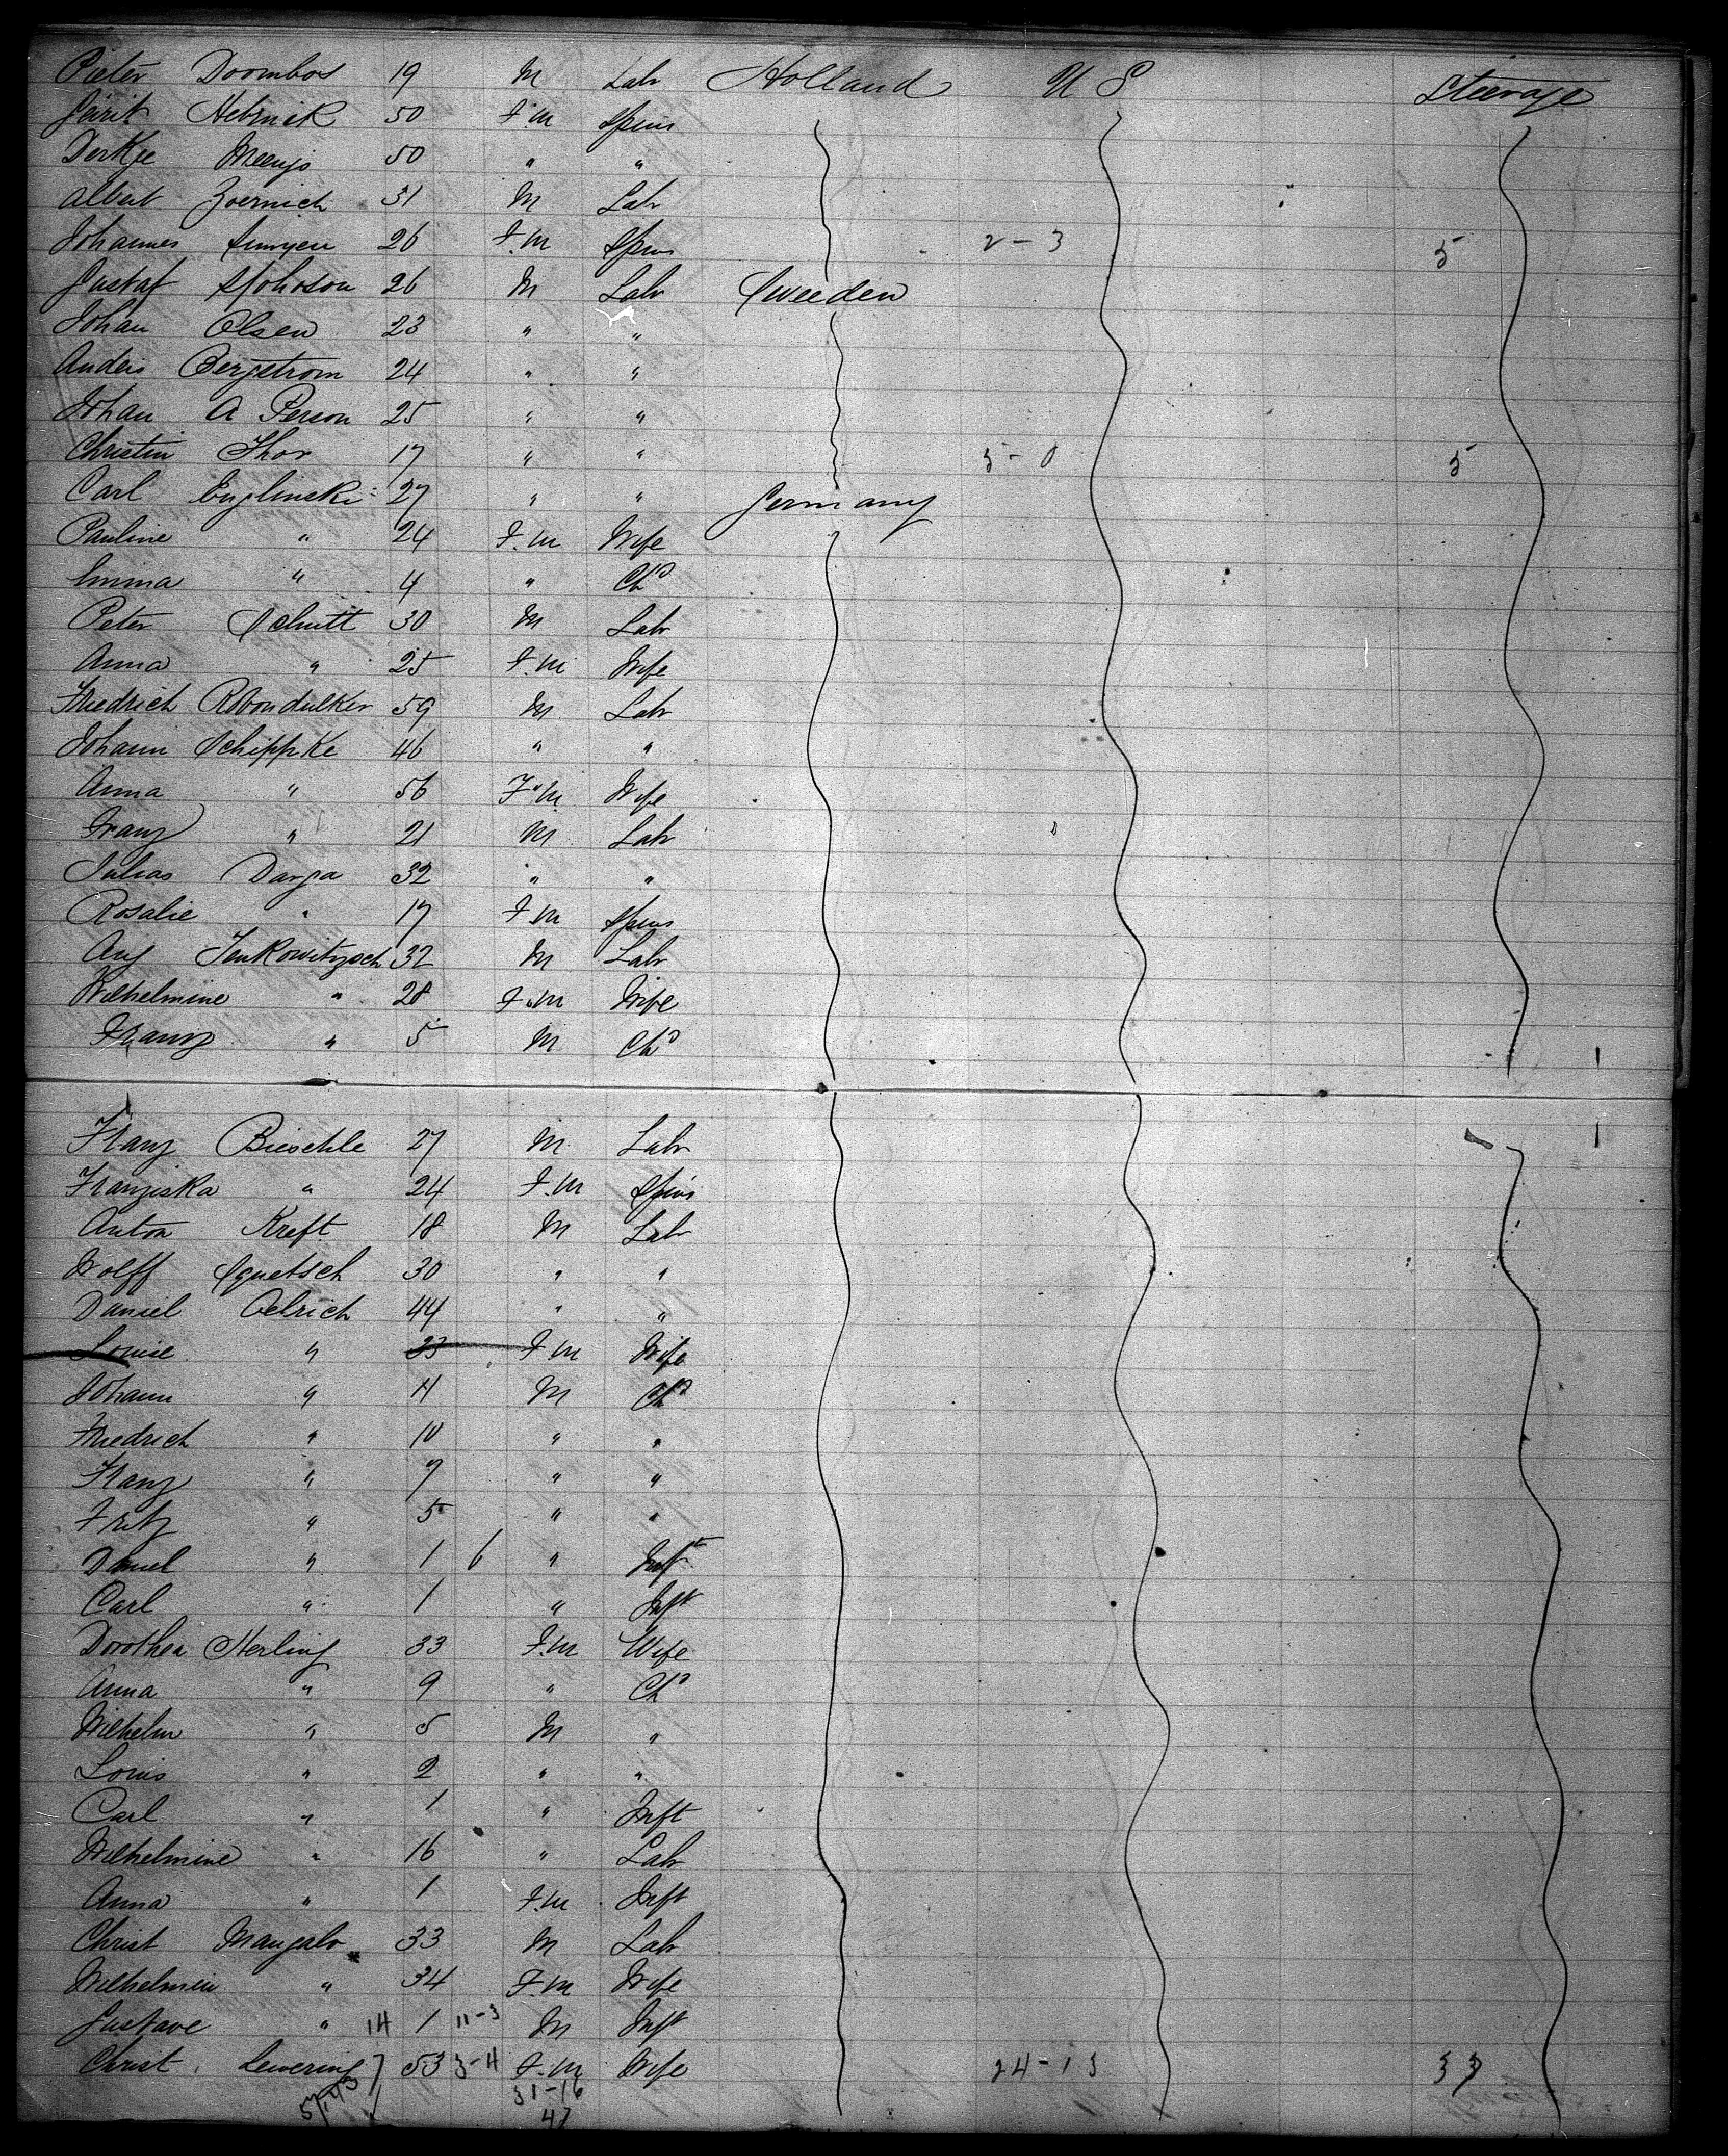 Pieter Doornbos 19 M Lab Holland U S Steerage
Gerrit Hebrink 50 F.M Spins
Derkje Meenjo 50 " "
Albert Zoernich 31 M Lab
Johannes 26 F.M Spins 2-3 5
Gustaf 26 M Lab Sweeden
Johan Olsen 23 " "
Anders Bergstrom 24 " "
Johan A Person 25 " "
Christin Thor 17 " " 5-0 5
Carl Englinski 27 " " Germany
Pauline " 24 F.M Wife
Emma " 4 " Chd
Peter Schutt 30 M Lab
Anna " 25 F.M Wife
Friedrich 59 M Lab
Johann Schippke 46 " "
Anna " 56 F.M Wife
Franz " 21 M Lab
Julias Darga 32 " "
Rosalie " 17 F.M Spins
Aug Jenkowitzsch 32 M Lab
Wilhelmine " 28 F.M Wife
Franz " 5 M Chd
Franz Bieschle 27 M Lab
Franziska " 24 F.M Spins
Anton Kreft 18 M Lab
Wolff 30 " "
Daniel Oelrich 44 " "
Louise " 33 F M Wife
Johann " 11 M Chd
Friedrich " 10 " "
Franz " 7 " "
Fritz " 5 " "
Daniel " 1 6 " Inft
Carl " 1 " Inft
Dorothea Herling 33 F.M Wife
Anna " 9 " Chd
Wilhelm " 5 M "
Louis " 2 " "
Carl " 1 " Inft
Wilhelmine " 16 " Lab
Anna " 1 F.M Inft
Christ 33 M Lab
Wilhelmin " 34 F.M Wife
Gustave " 14 1 11-3 M Inft
Christ Lewering 7 53 3-4 F.M Wife 24-13 37
31-16
47